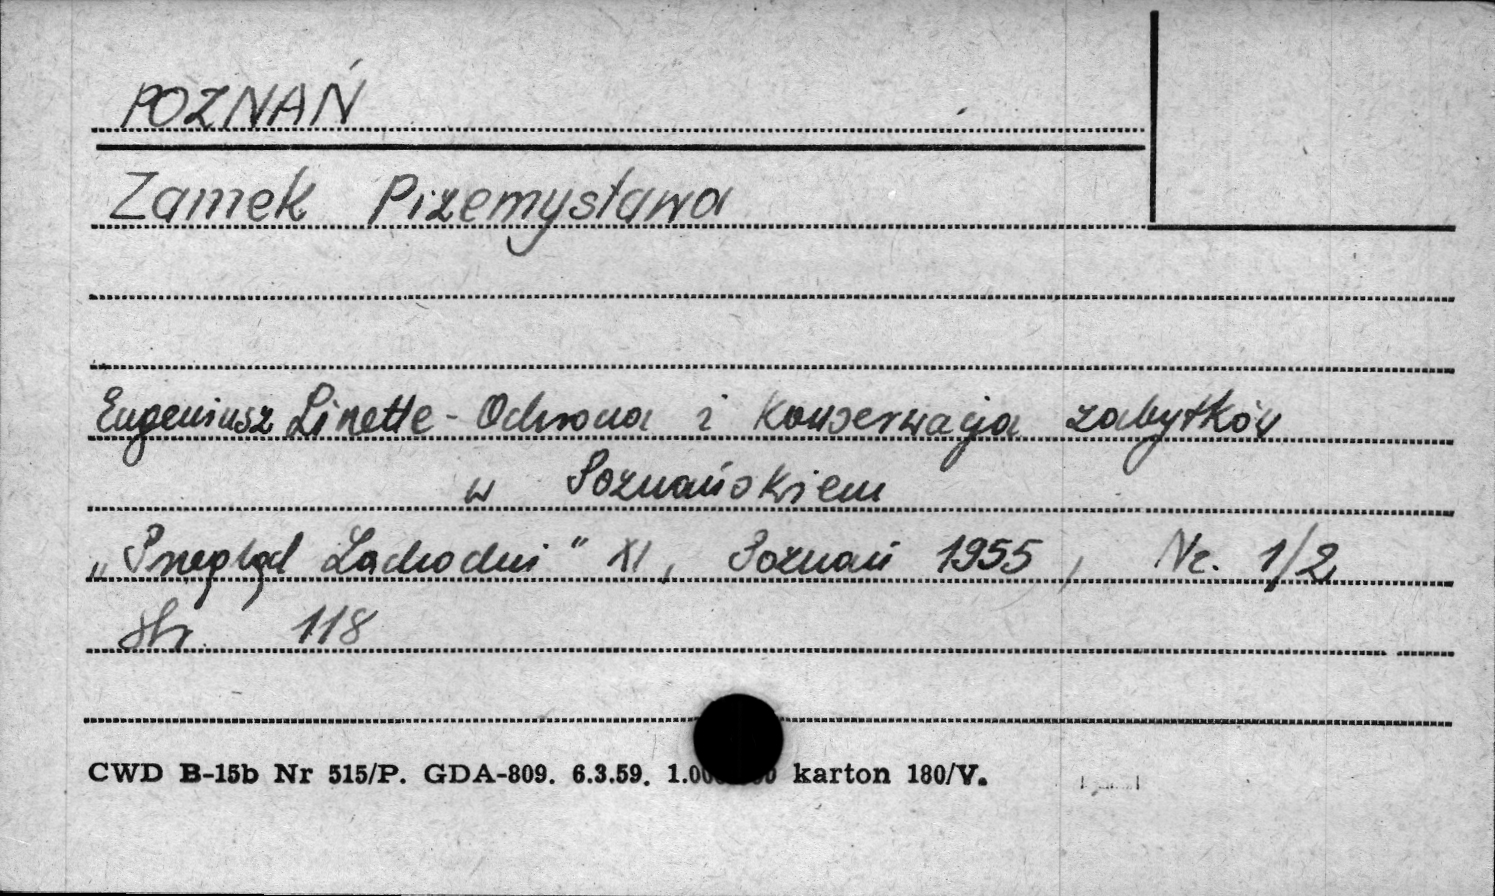 POZNAŃ
Zamek Przemysława
Eugeniusz Linette - Ochrona i konserwacja zabytków
w Poznańskiem
„Przegląd Zachodni" XI, Poznań 1955, Nr. 1/2
str. 118
CWD B-15b Nr 515/P. GDA-809. 6.3.59. karton 180/V.